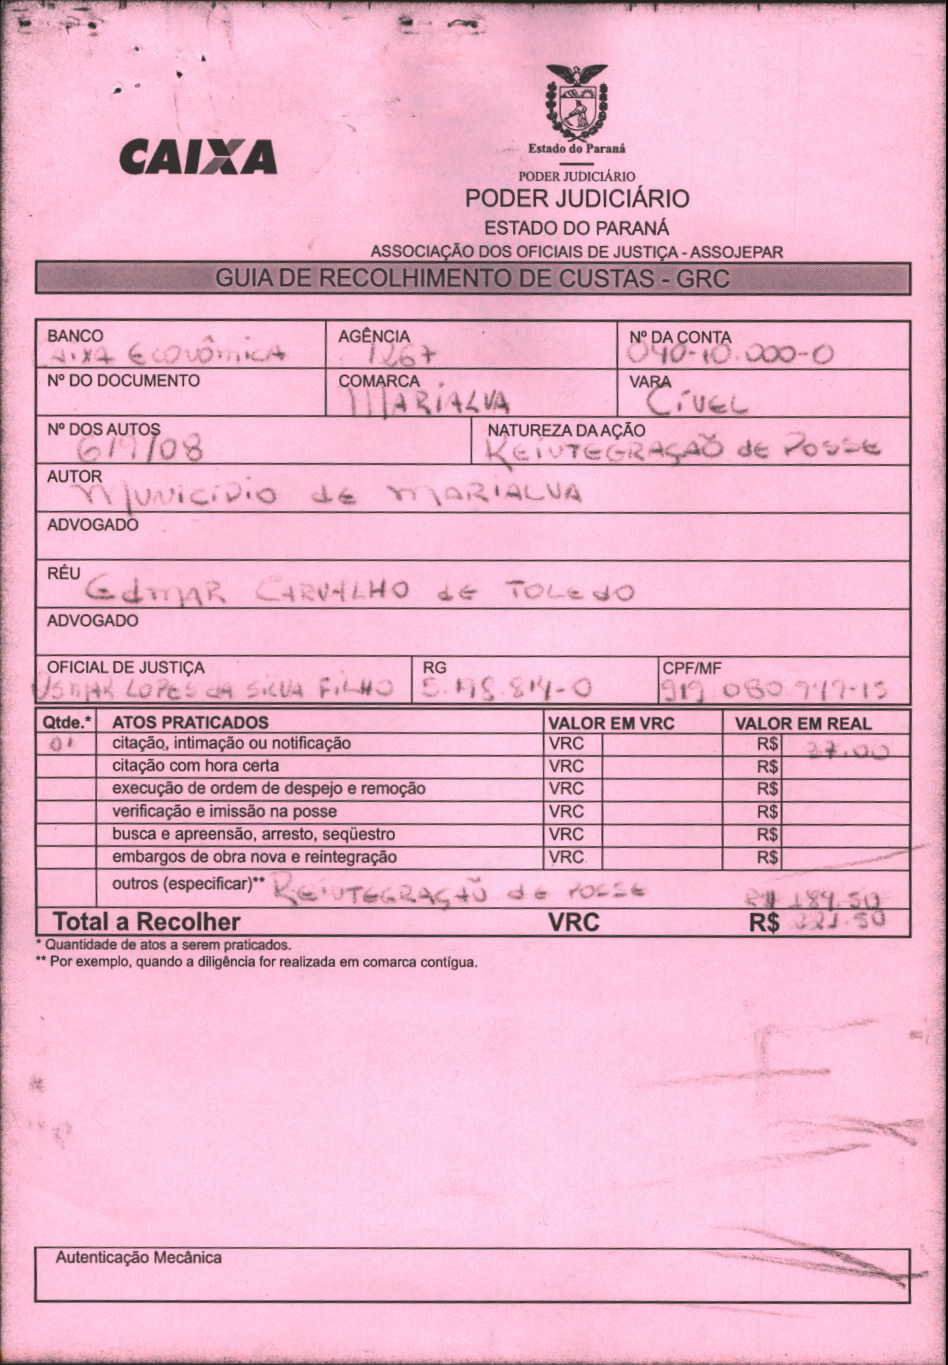 CAIXA
Estado do Paraná
PODER JUDICIÁRIO
PODER JUDICIÁRIO
ESTADO DO PARANÁ
ASSOCIAÇÃO DOS OFICIAIS DE JUSTIÇA - ASSOJEPAR
GUIA DE RECOLHIMENTO DE CUSTAS - GRC
BANCO AGÊNCIA Nº DA CONTA
AIXA ECONÔMICA 1267 040-10.000-0
Nº DO DOCUMENTO COMARCA VARA
MARIALVA CÍVEL
Nº DOS AUTOS NATUREZA DA AÇÃO
619/08 REINTEGRAÇÃO de POSSE
AUTOR
MUNICÍPIO de MARIALVA
ADVOGADO
RÉU
EdMAR CARVALHO de TOLEdO
ADVOGADO
OFICIAL DE JUSTIÇA RG CPF/MF
LOPES dA SILVA FILHO
Qtde.* ATOS PRATICADOS VALOR EM VRC VALOR EM REAL
01 citação, intimação ou notificação VRC R$ 37.00
citação com hora certa VRC R$
execução de ordem de despejo e remoção VRC R$
verificação e imissão na posse VRC R$
busca e apreensão, arresto, seqüestro VRC R$
embargos de obra nova e reintegração VRC R$
outros (especificar)** REINTEGRAÇÃO de POSSE R$ 184.50
Total a Recolher VRC R$ 221.50
* Quantidade de atos a serem praticados.
** Por exemplo, quando a diligência for realizada em comarca contígua.
Autenticação Mecânica